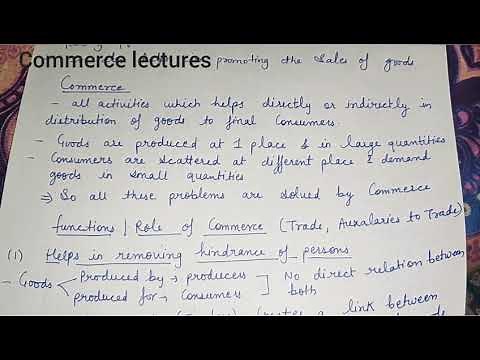 Commerce lectures promoting the Sales of goods
Commerce
- all activities which helps directly or indirectly in
distribution of goods to final Consumers.
- Goods are produced at 1 place & in large quantities
- Consumers are scattered at different place & demand
goods in small quantities
⇒ So all these problems are solved by Commerce
functions / Role of Commerce (Trade, Auxalaries to Trade)
(1) Helps in removing hindrance of persons
- Goods Produced by → producers No direct relation between
produced for → Consumers both
a link between